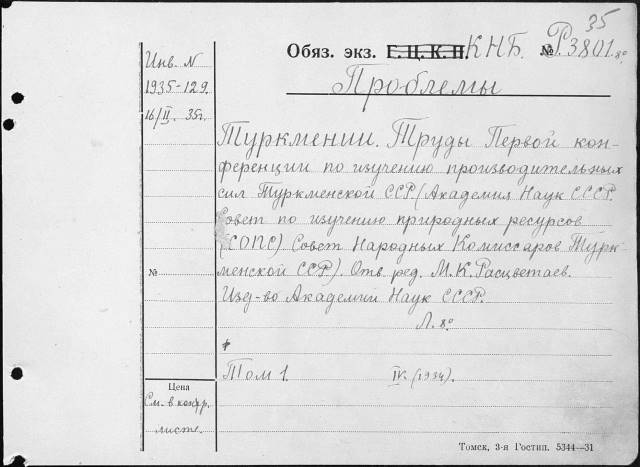 35
Обяз. экз. Г.Ц.К.П. КНБ. № Р3801.8º
Инв. N
1935-129.
16/II. 35г.
Проблемы
Туркмении. Труды Первой кон-
ференции по изучению производительных
сил Туркменской ССР. (Академия Наук СССР.
Совет по изучению природных ресурсов
(СОПС) Совет Народных Комиссаров Турк-
менской ССР). Отв. ред. М.К. Расцветаев.
№
Изд-во Академии Наук СССР.
Л. 8º
Том 1. IV. (1934).
Цена
См. в контр.
листе.
Томск, 3-я Гостип. 5344—31